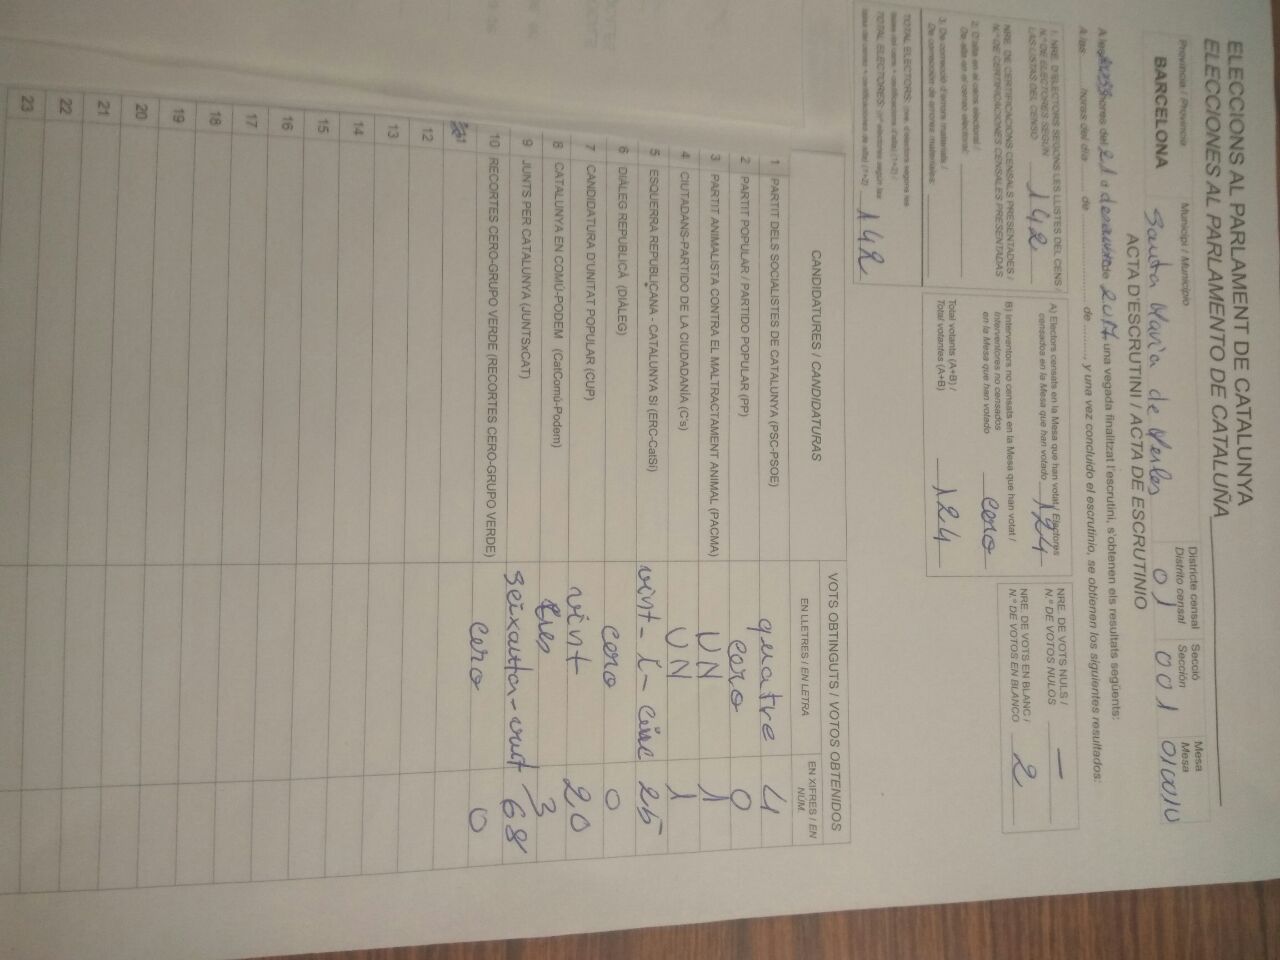 ELECCIONS AL PARLAMENT DE CATALUNYA
ELECCIONES AL PARLAMENTO DE CATALUÑA
Província / Provincia Municipi / Municipio Districte censal Secció Mesa
Distrito censal Sección Mesa
BARCELONA Santa Maria de Merlès 01 001
ACTA D'ESCRUTINI / ACTA DE ESCRUTINIO
A les hores del 21 d desembre de 2017 una vegada finalitzat l'escrutini, s'obtenen els resultats següents:
A las ......... horas del día ......... de ......... de ........., y una vez concluido el escrutinio, se obtienen los siguientes resultados:
1. NRE. D'ELECTORS SEGONS LES LLISTES DEL CENS /
N.º DE ELECTORES SEGÚN
LAS LISTAS DEL CENSO 142
NRE. DE CERTIFICACIONS CENSALS PRESENTADES /
N.º DE CERTIFICACIONES CENSALES PRESENTADAS
2. D'alta en el cens electoral /
De alta en el censo electoral:
3. De correcció d'errors materials /
De corrección de errores materiales:
TOTAL ELECTORS: (nre. d'electors segons les
llistes del cens + certificacions d'alta) (1+2) /
TOTAL ELECTORES: (nº electores según las
listas del censo + certificaciones de alta) (1+2) 142
A) Electors censats en la Mesa que han votat / Electores
censados en la Mesa que han votado 124
B) Interventors no censats en la Mesa que han votat /
Interventores no censados
en la Mesa que han votado cero
Total votants (A+B) /
Total votantes (A+B) 124
NRE. DE VOTS NULS /
N.º DE VOTOS NULOS —
NRE. DE VOTS EN BLANC /
N.º DE VOTOS EN BLANCO 2
CANDIDATURES / CANDIDATURAS VOTS OBTINGUTS / VOTOS OBTENIDOS
EN LLETRES / EN LETRA EN XIFRES / EN NÚM.
1 PARTIT DELS SOCIALISTES DE CATALUNYA (PSC-PSOE) quatre 4
2 PARTIT POPULAR / PARTIDO POPULAR (PP) cero 0
3 PARTIT ANIMALISTA CONTRA EL MALTRACTAMENT ANIMAL (PACMA) UN 1
4 CIUTADANS-PARTIDO DE LA CIUDADANÍA (C's) UN 1
5 ESQUERRA REPUBLICANA - CATALUNYA SÍ (ERC-CatSí) vint-i-cinc 25
6 DIÀLEG REPUBLICÀ (DIÀLEG) cero 0
7 CANDIDATURA D'UNITAT POPULAR (CUP) vint 20
8 CATALUNYA EN COMÚ-PODEM (CatComú-Podem) tres 3
9 JUNTS PER CATALUNYA (JUNTSxCAT) seixanta-vuit 68
10 RECORTES CERO-GRUPO VERDE (RECORTES CERO-GRUPO VERDE) cero 0
12
13
14
15
16
17
18
19
20
21
22
23